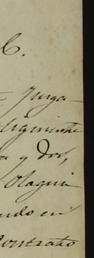 C.
Jurga-
siguiente
a y dos,
Olaguí
endo en
Contrato